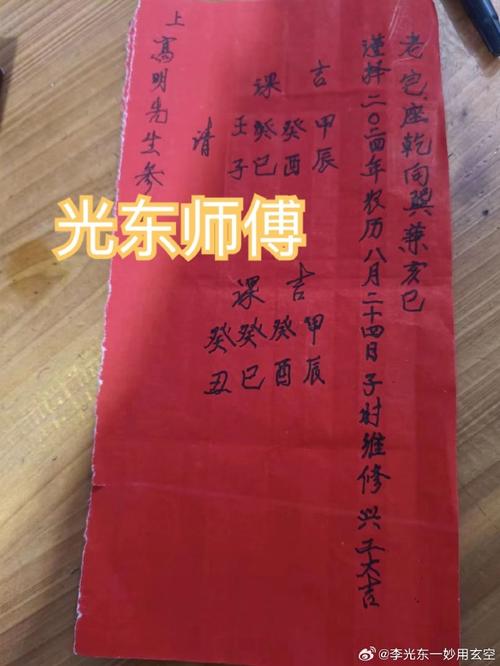 老宅座乾向巽兼亥巳
谨择二〇二四年农历八月二十四日子时维修兴工大吉
吉 甲辰
癸酉
课 癸巳
壬子
请
上高明先生参
吉 甲辰
癸酉
课 癸巳
癸丑
光东师傅
@李光东一妙用玄空